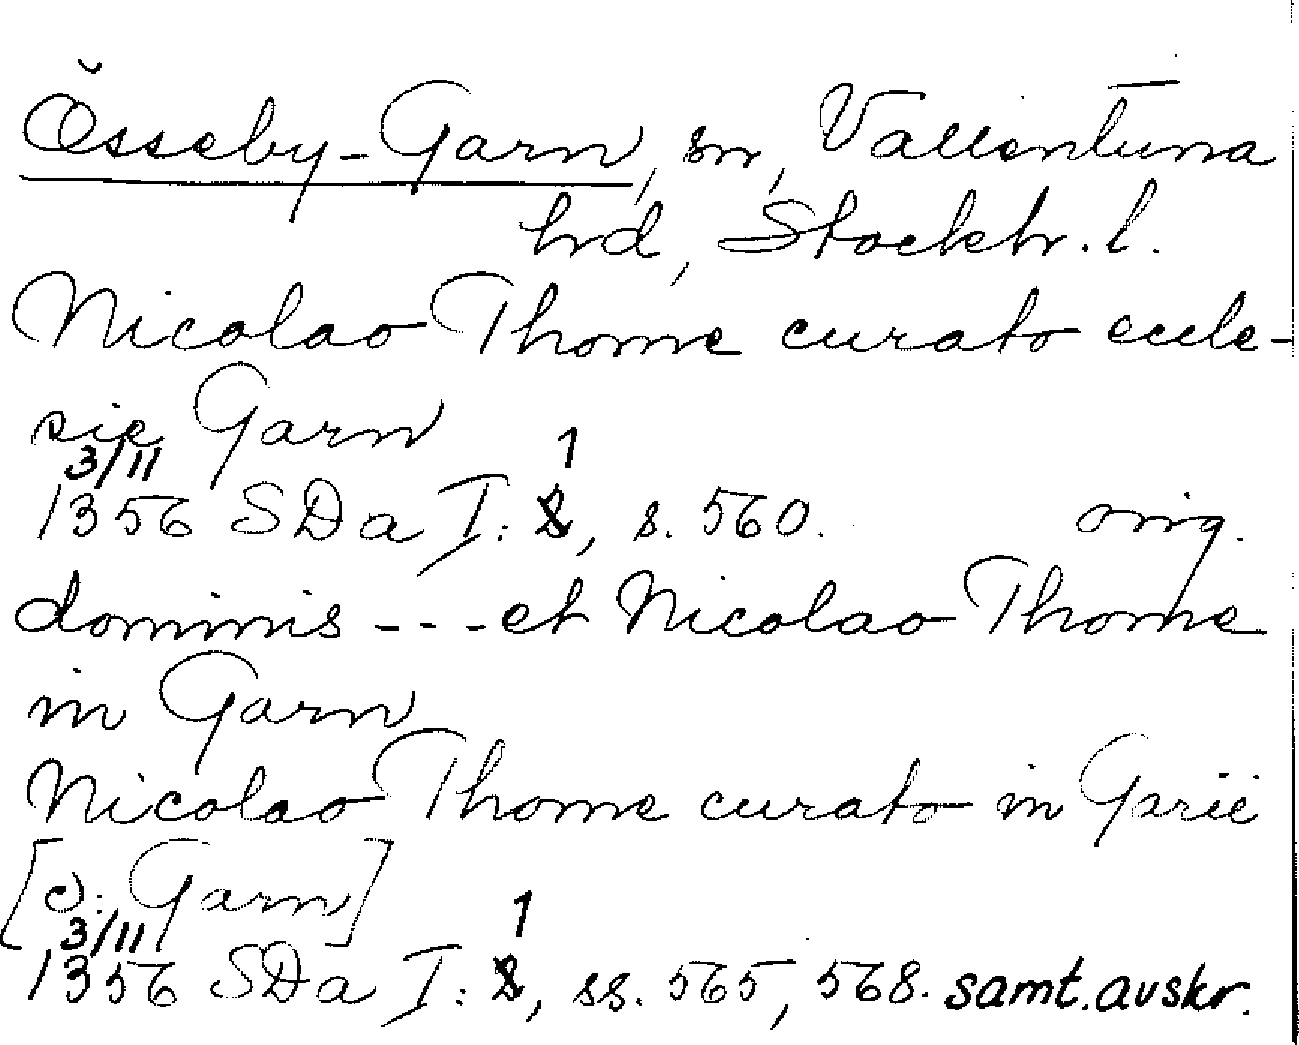 Össeby-Garn, sn, Vallentuna
hd, Stockh. l.
Nicolao Thome curato eccle-
sie Garn
3/11 1
1356 SDa I: 8, s. 560. orig.
dominis --- et Nicolao Thome
in Garn
Nicolao Thome curato in Garii
[ɔ: Garn]
3/11 1
1356 SDa I: 8, ss. 565, 568. samt. avskr.